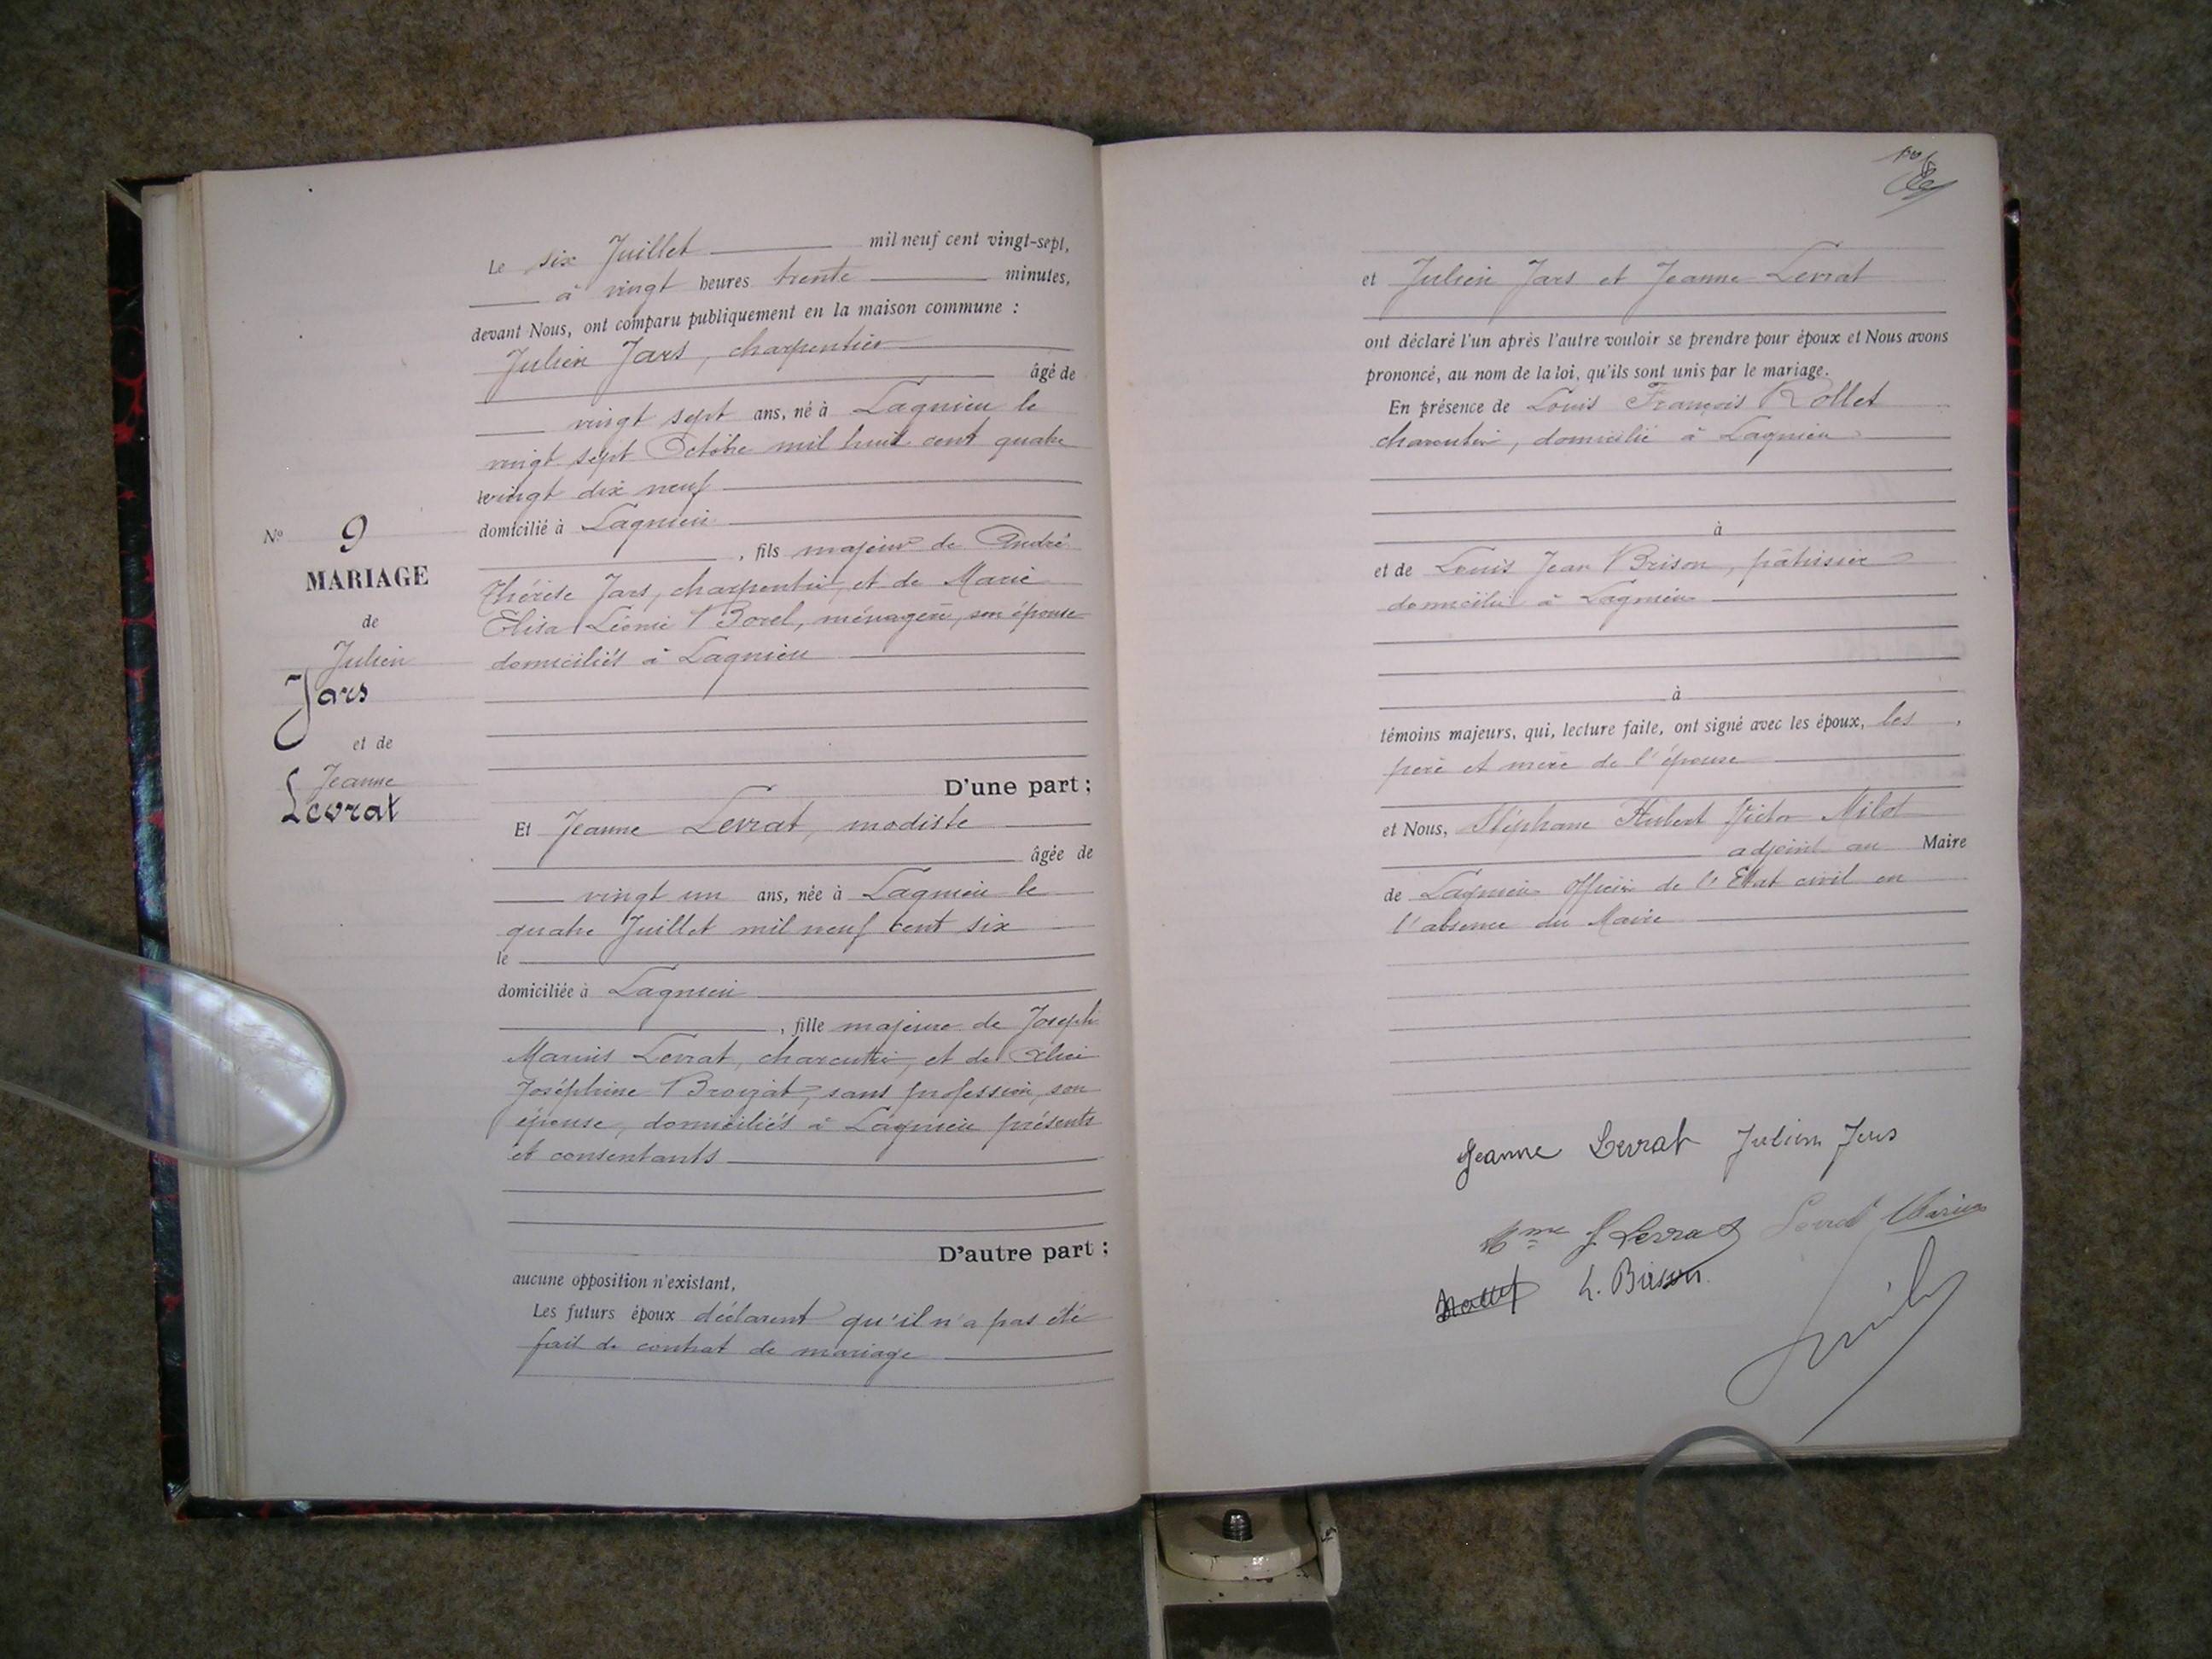 Le six Juillet mil neuf cent vingt-sept,
à vingt heures trente minutes,
devant Nous, ont comparu publiquement en la maison commune :
Julien Jars, charpentier
âgé de
vingt sept ans, né à Lagnieu le
vingt sept Octobre mil huit cent quatre
vingt dix neuf
domicilié à Lagnieu
, fils majeur de André
Thérèse Jars, charpentier, et de Marie
Elisa Léonie Borel, ménagère, son épouse
domiciliés à Lagnieu
D'une part ;
Nº 9
MARIAGE
de
Julien
Jars
et de
Jeanne
Levrat
Et Jeanne Levrat, modiste
âgée de
vingt un ans, née à Lagnieu le
quatre Juillet mil neuf cent six
le
domiciliée à Lagnieu
, fille majeure de Joseph
Marius Levrat, charcutier, et de
Joséphine sans profession, son
épouse, domiciliés à Lagnieu présents
et consentants
D'autre part ;
aucune opposition n'existant,
Les futurs époux déclarent qu'il n'a pas été
fait de contrat de mariage
et Julien Jars et Jeanne Levrat
ont déclaré l'un après l'autre vouloir se prendre pour époux et Nous avons
prononcé, au nom de la loi, qu'ils sont unis par le mariage.
En présence de Louis François Rollet
charcutier, domicilié à Lagnieu
à
et de Louis Jean Brison, pâtissier
domicilié à Lagnieu
à
témoins majeurs, qui, lecture faite, ont signé avec les époux, les
père et mère de l'épouse
et Nous, Stéphane Hubert Victor Milot
adjoint au Maire
de Lagnieu Officier de l'Etat civil en
l'absence du Maire
Jeanne Levrat Julien Jars
Mme J. Levrat Levrat Marius
L. Brison